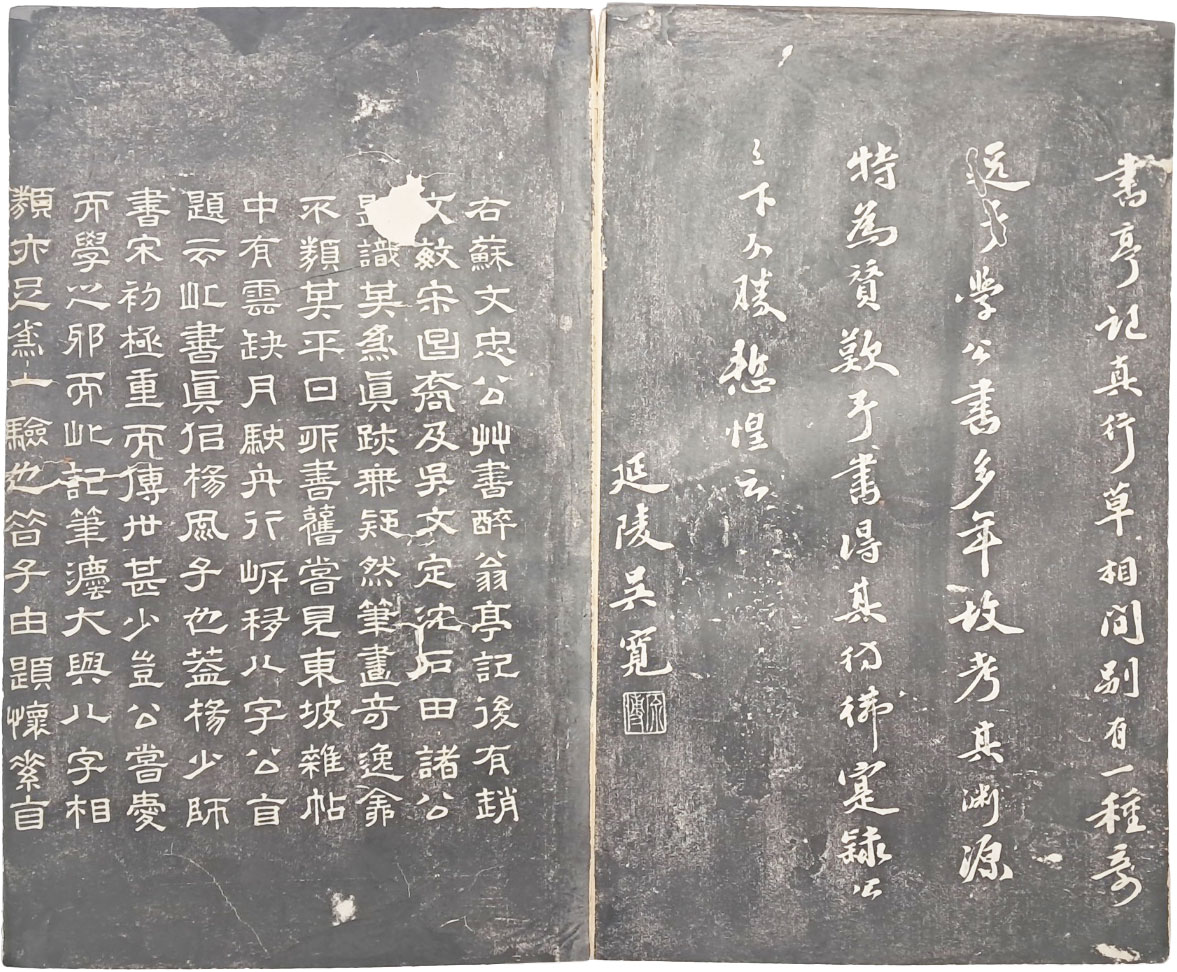 書亭記真行草相間別有一種奇
逸學公書多年故考其淵源
特為賛歎予書得其彷彿寔隸公
々下不勝慙惶云
延陵吳寬
原博
右蘇文忠公艸書醉翁亭記後有趙
文敏宋昌裔及吳文定沈石田諸公
題識其為眞跡無疑然筆畫奇逸
不類其平日所書舊嘗見東坡雜帖
中有雲缺月駛舟行岸移八字公自
題云此書眞似楊風子也蓋楊少師
書宋初極重而傳世甚少豈公嘗愛
而學之邪而此記筆灋大與八字相
類亦足為一驗也昔子由題懷素自